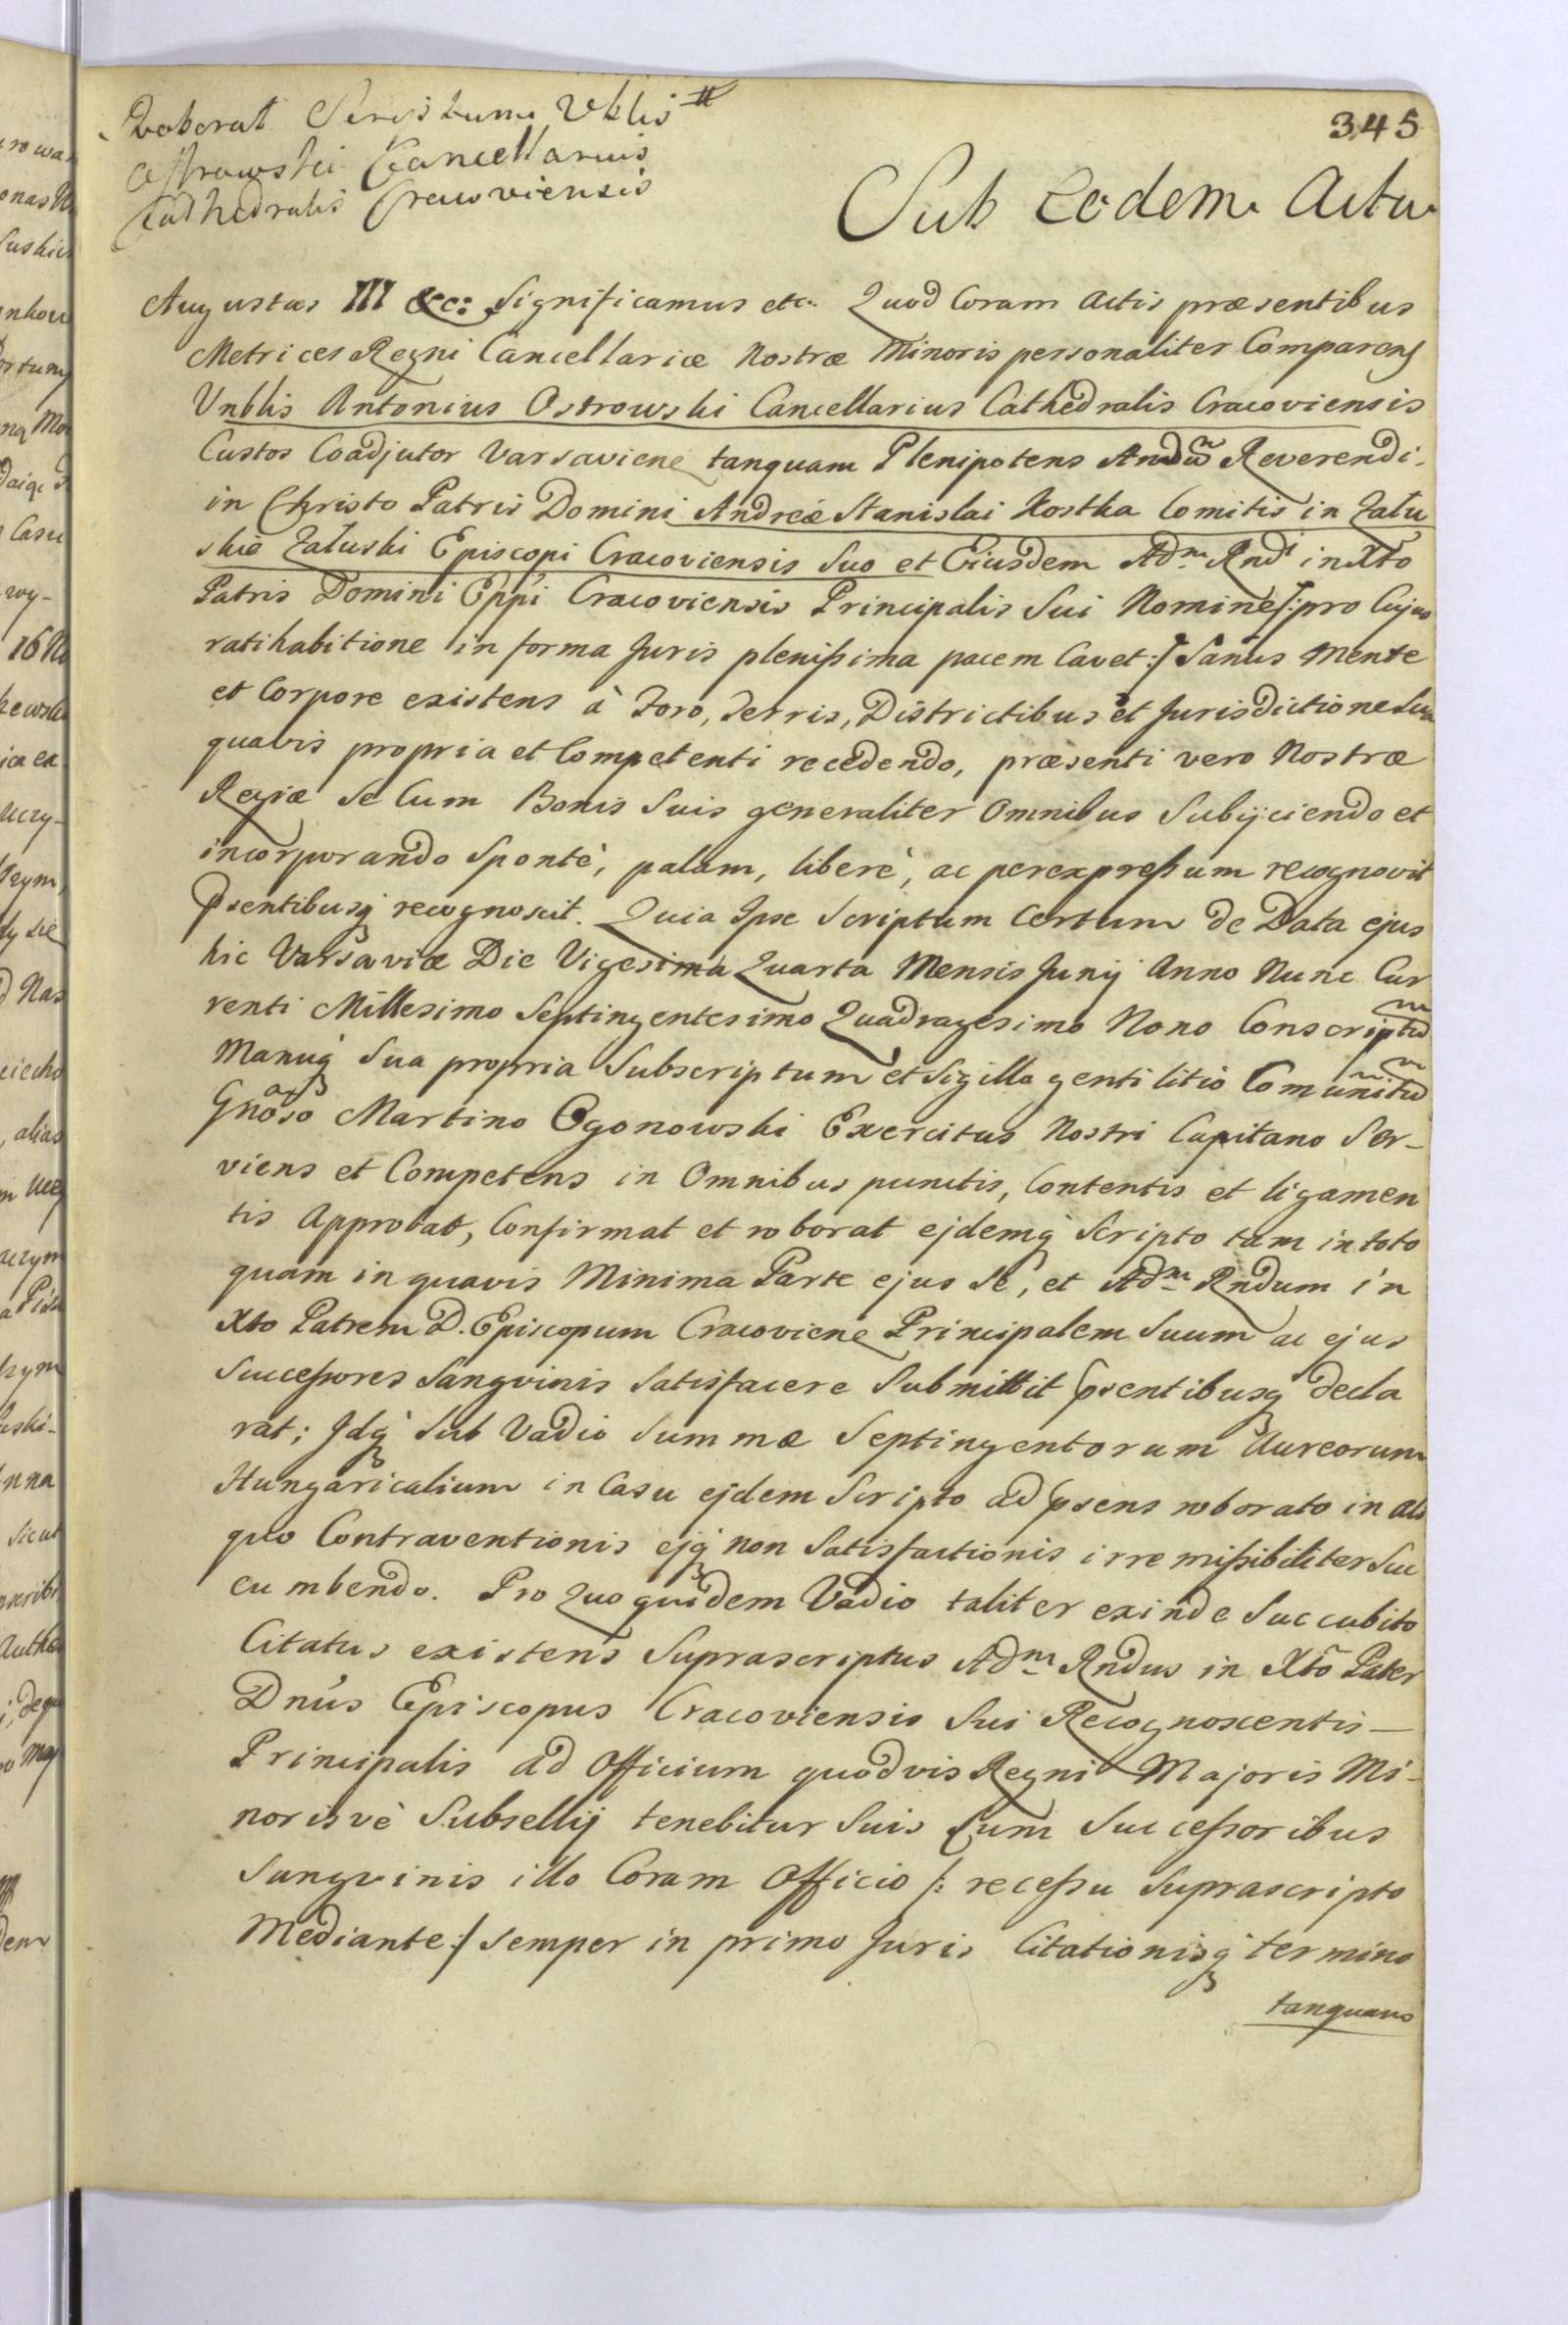 Roborat Scriptum Vblis
Ostrowski Cancellarius
Cathedralis Cracoviensis
345
Sub Eodem Actu
Augustus III &c: Significamus etc. Quod Coram Actis præsentibus
Metrices Regni Cancellariæ Nostræ Minoris personaliter Comparens
Vnblis Antonius Ostrowski Cancellarius Cathedralis Cracoviensis
Custos Coadjutor Varsaviene tanquam Plenipotens Reverendi
in Christo Patris Domini Andreæ Stanislai Kostka Comitis in Zału
skie Załuski Episcopi Cracoviensis Suo et Eiusdem Adm Rndi in Xto
Patris Domini Eppi Cracoviensis Principalis Sui Nomine /: pro Cujus
ratihabitione in forma Juris plenissima pacem Cavet :/ Sanus Mente
et Corpore existens à Foro, Terris, Districtibus et Jurisdictione Sua
quavis propria et Competenti recedendo, præsenti vero Nostræ
Regiæ Se Cum Bonis Suis generaliter Omnibus Subijciendo et
incorporando Sponte, palam, liberè, ac perexpressum recognovit
psentibusq recognoscit. Quia Ipse Scriptum Certum de Data ejus
hic Varsaviæ Die Vigesima Quarta Mensis Junij Anno Nunc Cur
renti Millesimo Septingentesimo Quadragesimo Nono Conscriptū
Manuq Sua propria Subscriptum et Sigillo gentilitio Comunitū
Gnoso Martino Ogonowski Exercitus Nostri Capitano Ser-
viens et Competens in Omnibus punctis, Contentis et ligamen
tis Approbat, Confirmat et roborat ejdemq Scripto tam in toto
quam in quavis Minima Parte ejus Se, et Adm Rndum in
Xto Patrem D. Episcopum Cracoviene Principalem Suum ac ejus
Successores Sangvinis Satisfacere Submittit psentibusq decla
rat; Idq Sub Vadio Summæ Septingentorum Aureorum
Hungaricalium in Casu ejdem Scripto ad psens roborato in ali
quo Contraventionis ejq non Satisfactionis irremissibiliter Suc
cumbendo. Pro Quo quidem Vadio taliter exinde Succubito
Citatus existens Suprascriptus Adm Rndus in Xto Pater
Dnus Episcopus Cracoviensis Sui Recognoscentis
Principalis ad Officium quodvis Regni Majoris Mi-
norisvè Subsellij tenebitur Suis Cum Successoribus
Sangvinis illo Coram Officio /: recessu Suprascripto
Mediante :/ Semper in primo Juris Citationisq termino
tanquam